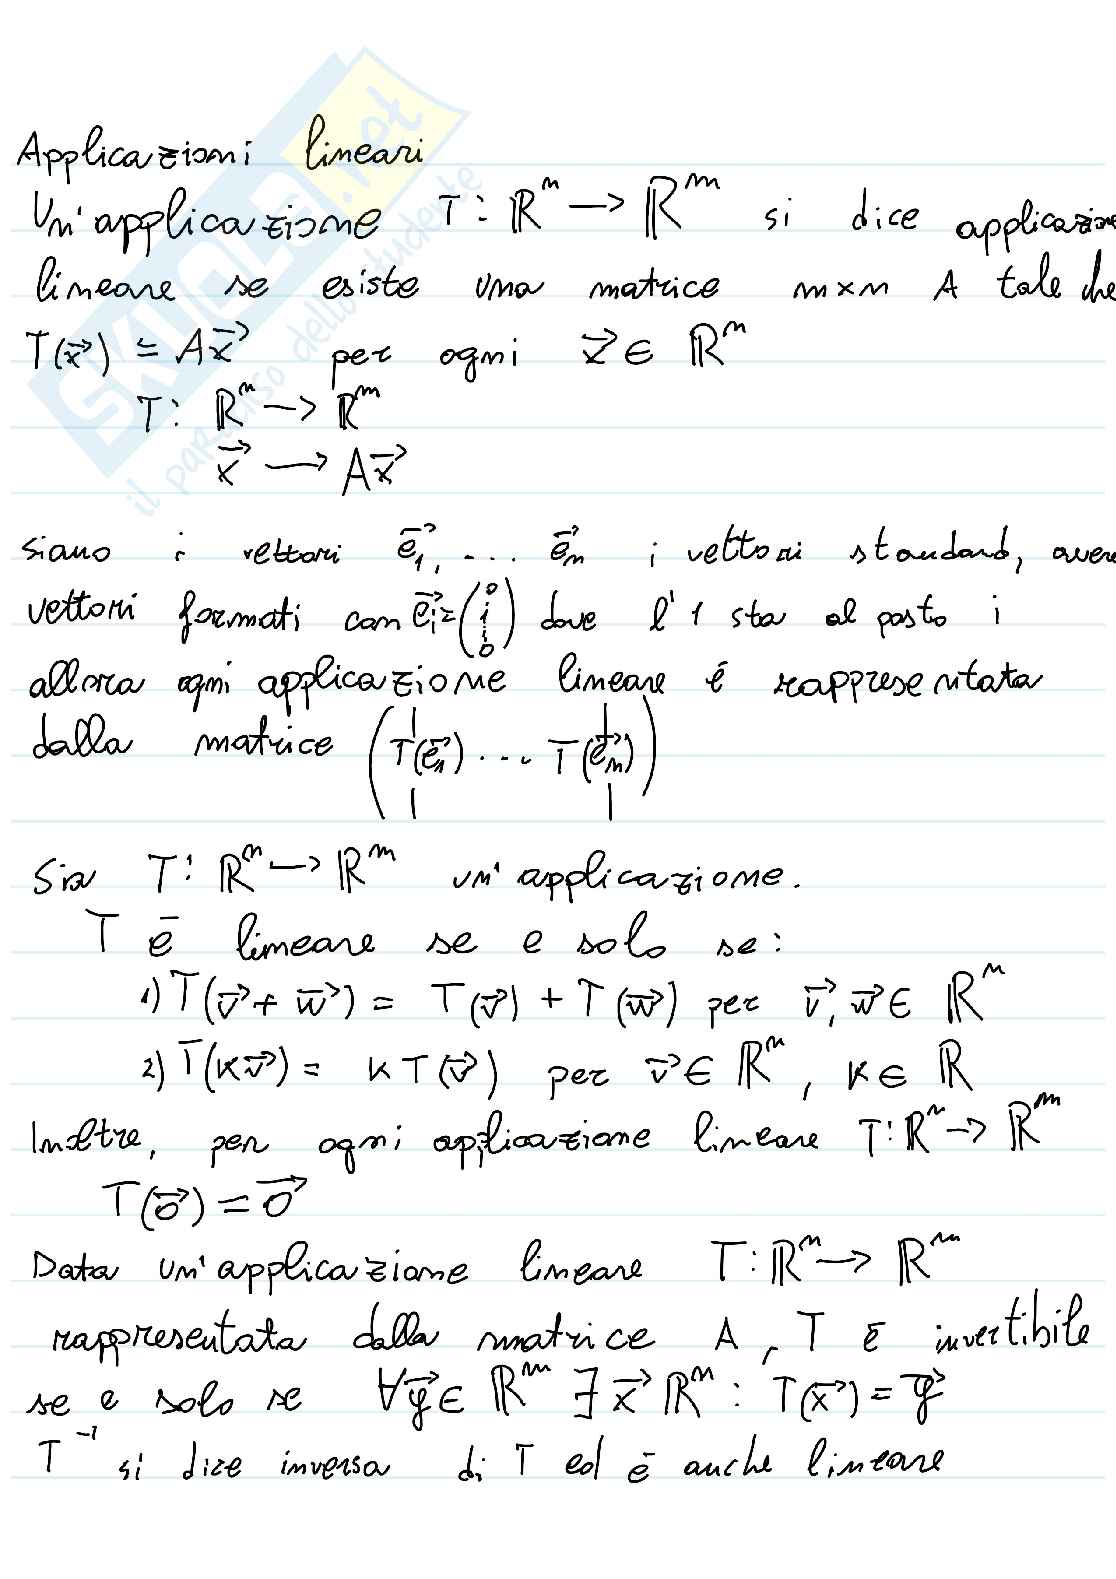 Applicazioni lineari
Un'applicazione T: ℝⁿ → ℝᵐ si dice applicazione
lineare se esiste una matrice m×n A tale che
T(x⃗) = Ax⃗ per ogni x⃗ ∈ ℝⁿ
T: ℝⁿ → ℝᵐ
x⃗ → Ax⃗
siano i vettori e⃗₁, ... e⃗ₙ i vettori standard,
vettori formati con e⃗ᵢ = (0 ⋮ 1 ⋮ 0) dove l'1 sta al posto i
allora ogni applicazione lineare é rappresentata
dalla matrice (T(e⃗₁) ... T(e⃗ₙ))
Sia T: ℝⁿ → ℝᵐ un'applicazione.
T è lineare se e solo se:
1) T(v⃗ + w⃗) = T(v⃗) + T(w⃗) per v⃗, w⃗ ∈ ℝⁿ
2) T(kv⃗) = kT(v⃗) per v⃗ ∈ ℝⁿ, k ∈ ℝ
Inoltre, per ogni applicazione lineare T: ℝⁿ → ℝᵐ
T(0⃗) = 0⃗
Data un'applicazione lineare T: ℝⁿ → ℝᵐ
rappresentata dalla matrice A, T è invertibile
se e solo se ∀y⃗ ∈ ℝᵐ ∃ x⃗ ℝⁿ : T(x⃗) = y⃗
T⁻¹ si dice inversa di T ed è anche lineare
SKUOLA.net
il paradiso dello studente